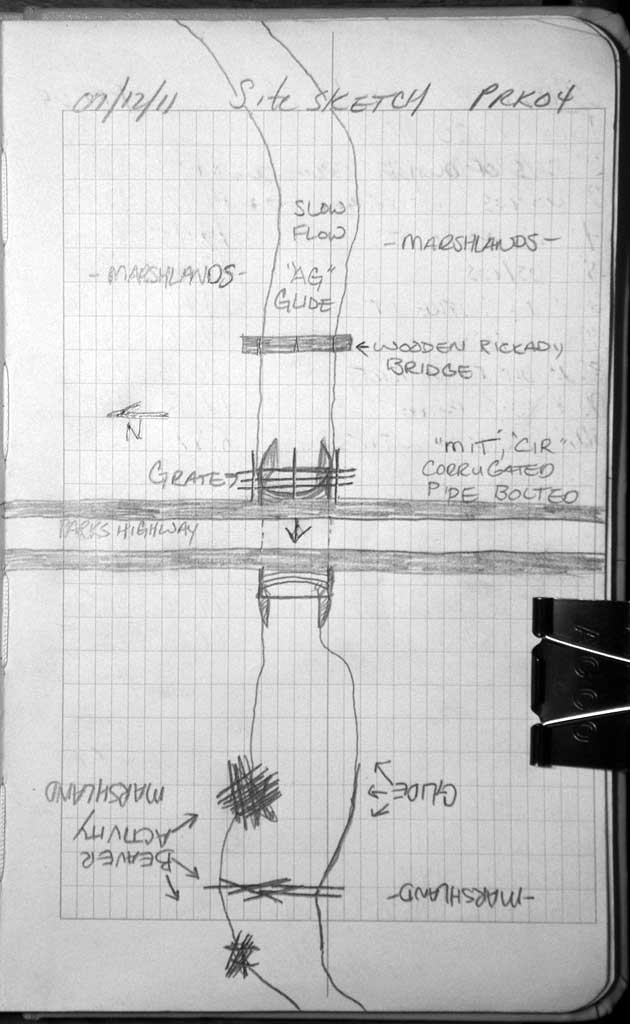 07/12/11 Site SKETCH PRK04
SLOW
FLOW
-MARSHLANDS-
-MARSHLANDS-
"AG"
GLIDE
←WOODEN RICKADY
BRIDGE
N
"MIT", "CIR"
CORRUGATED
PIPE BOLTED
GRATES
PARKS HIGHWAY
ACCO
GLIDE
MARSHLAND
BEAVER
ACTIVITY
-MARSHLAND-